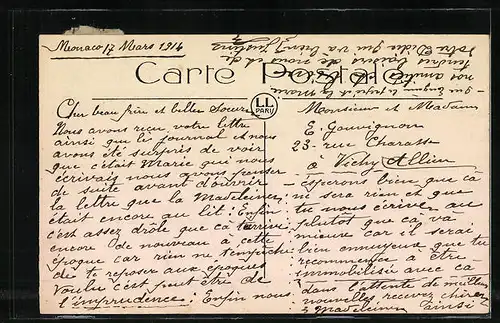 Monaco 17 Mars 1914
Carte Postale
LL
PARIS
Cher beau frère et belle Soeure
Nous avons reçu votre lettre
ainsi que le journal et nous
avons été surpris de voir
que c'était Marie qui nous
écrivais nous avons penser
de suite avant d'ouvrir
la lettre que la Madeleine
était encore au lit: Enfin
c'est assez drole que ca t'arrive
encore de nouveau a cette
époque car rien ne t'empêche
de te reposer aux époques
Voulu c'est peut être de
l'imprudence: Enfin nous
Monsieur et Madame
E. Gouvignon
23 rue Charasse
à Vichy Allier
esperons bien que cà
ne sera rien et que
tu nous écrive au
plutot que ca va
mieure car il serai
bien ennuyeux que tu
recommence a être
immobilisée avec ca
dans l'attente de meilleur
nouvelles recevez chère
Madeleine ainsi
que Eugène le pepé et la mémé
nos amitiés
tendres baisers de nous et de
votre Didi qui va bien